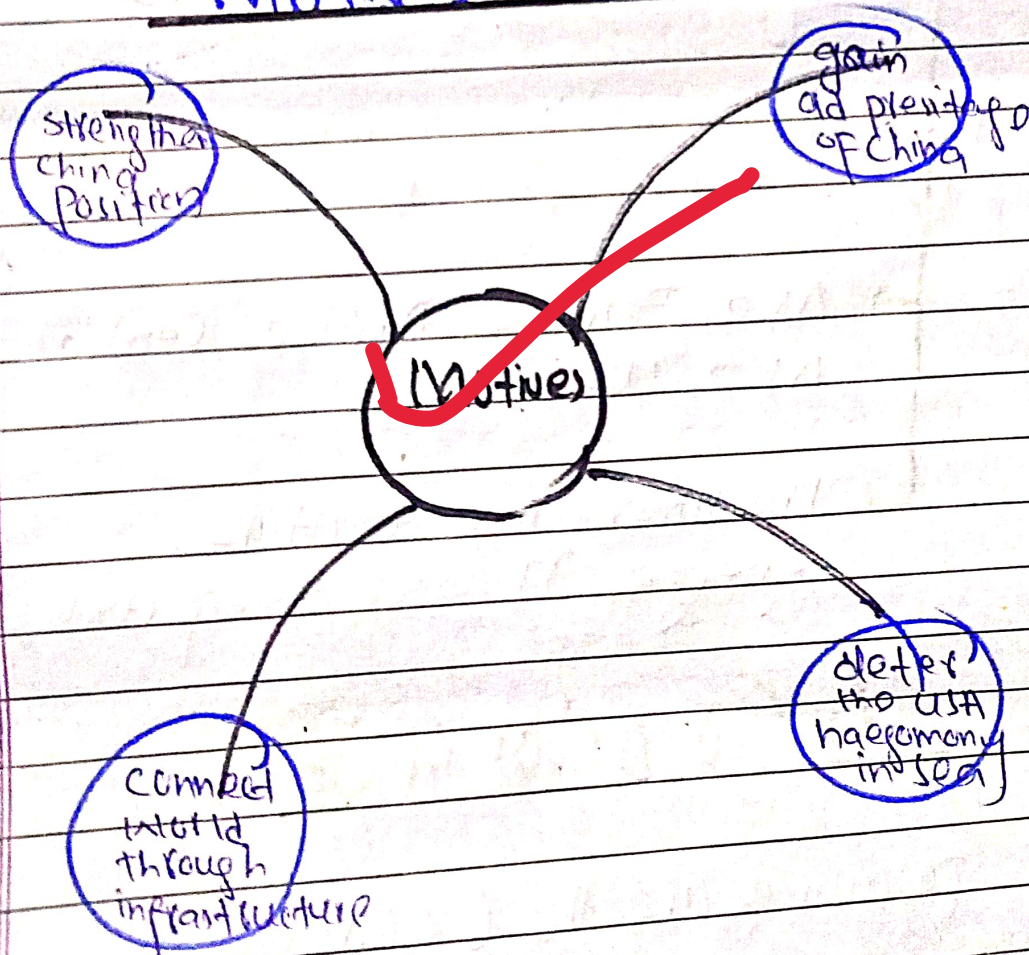 strengthen
China
Position
gain
ad prestage
of China
Motives
deter
the USA
haegomony
in sea
Connect
world
through
infrastructure